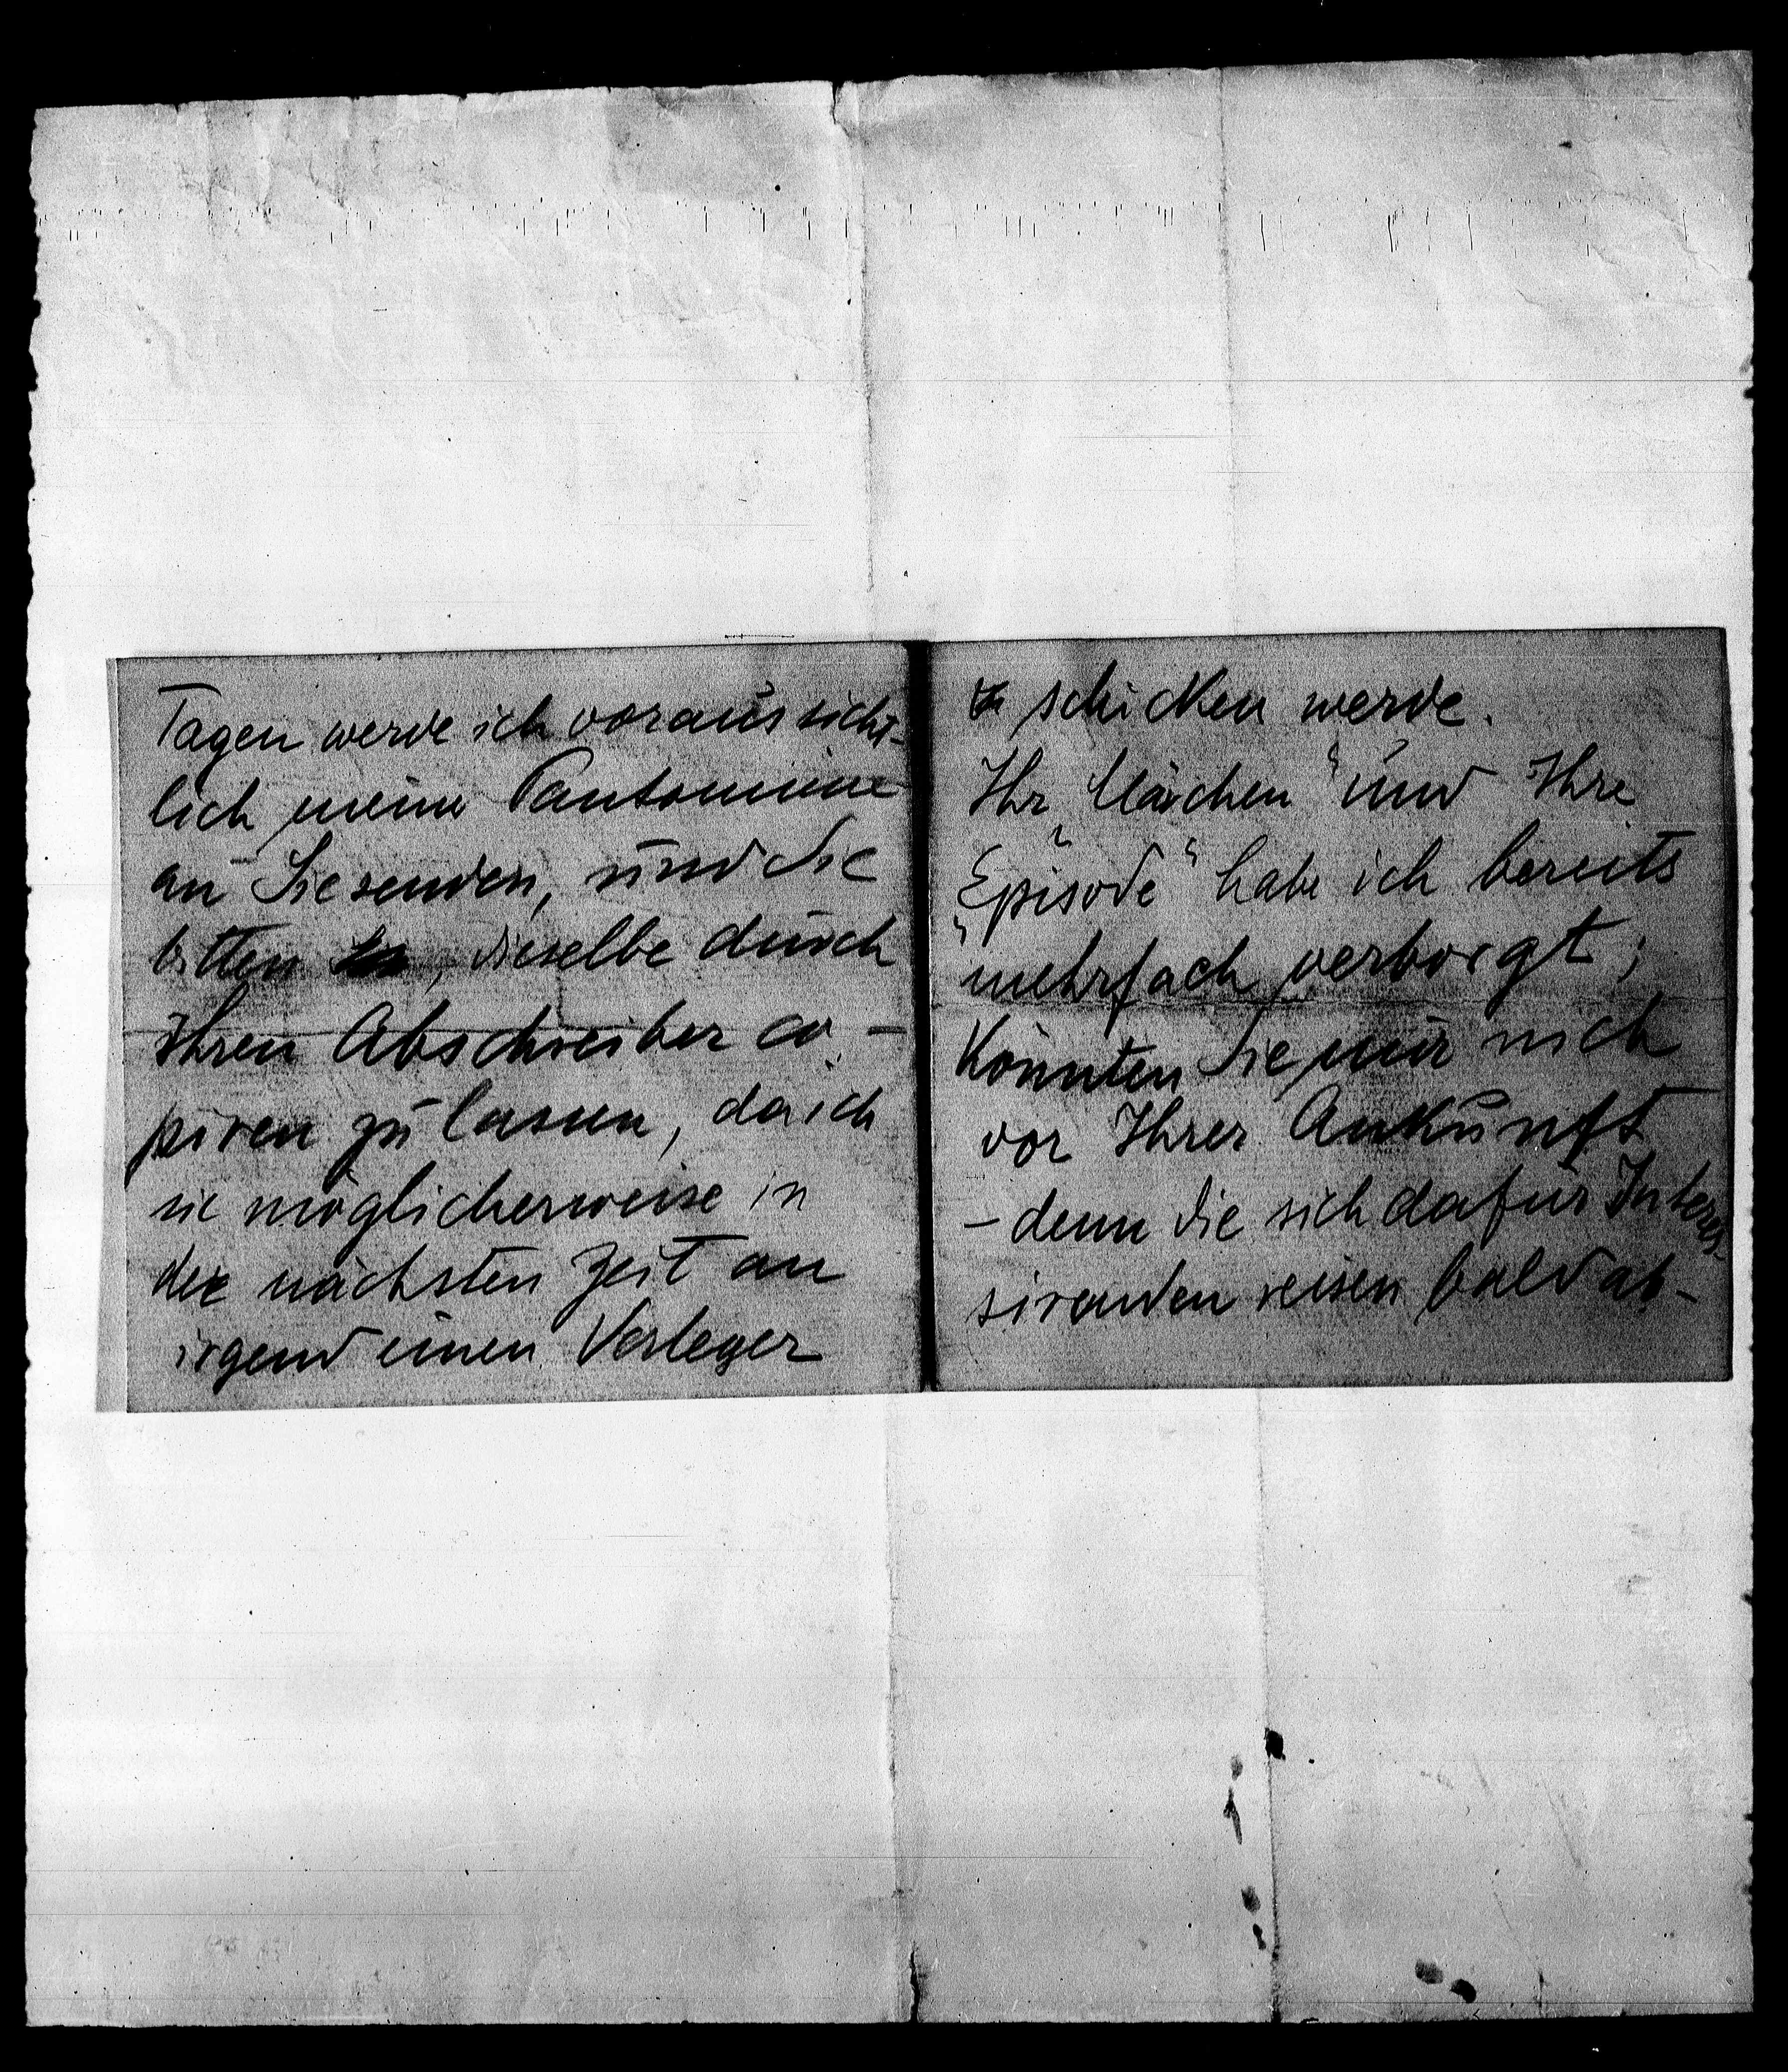 Tagen werde ich voraussicht-
lich meine Pantomime
an Sie senden, und Sie
bitten, dieselbe durch
Ihren Abschreiber co-
piren zu lassen, da ich
sie möglicherweise in
der nächsten Zeit an
irgend einen Verleger
schicken werde.
Ihr „Märchen“ und Ihre
„Episode“ habe ich bereits
mehrfach verborgt;
Könnten Sie mir nich
vor Ihrer Ankunft
– denn die sich dafür Interes-
sirenden reisen bald ab –